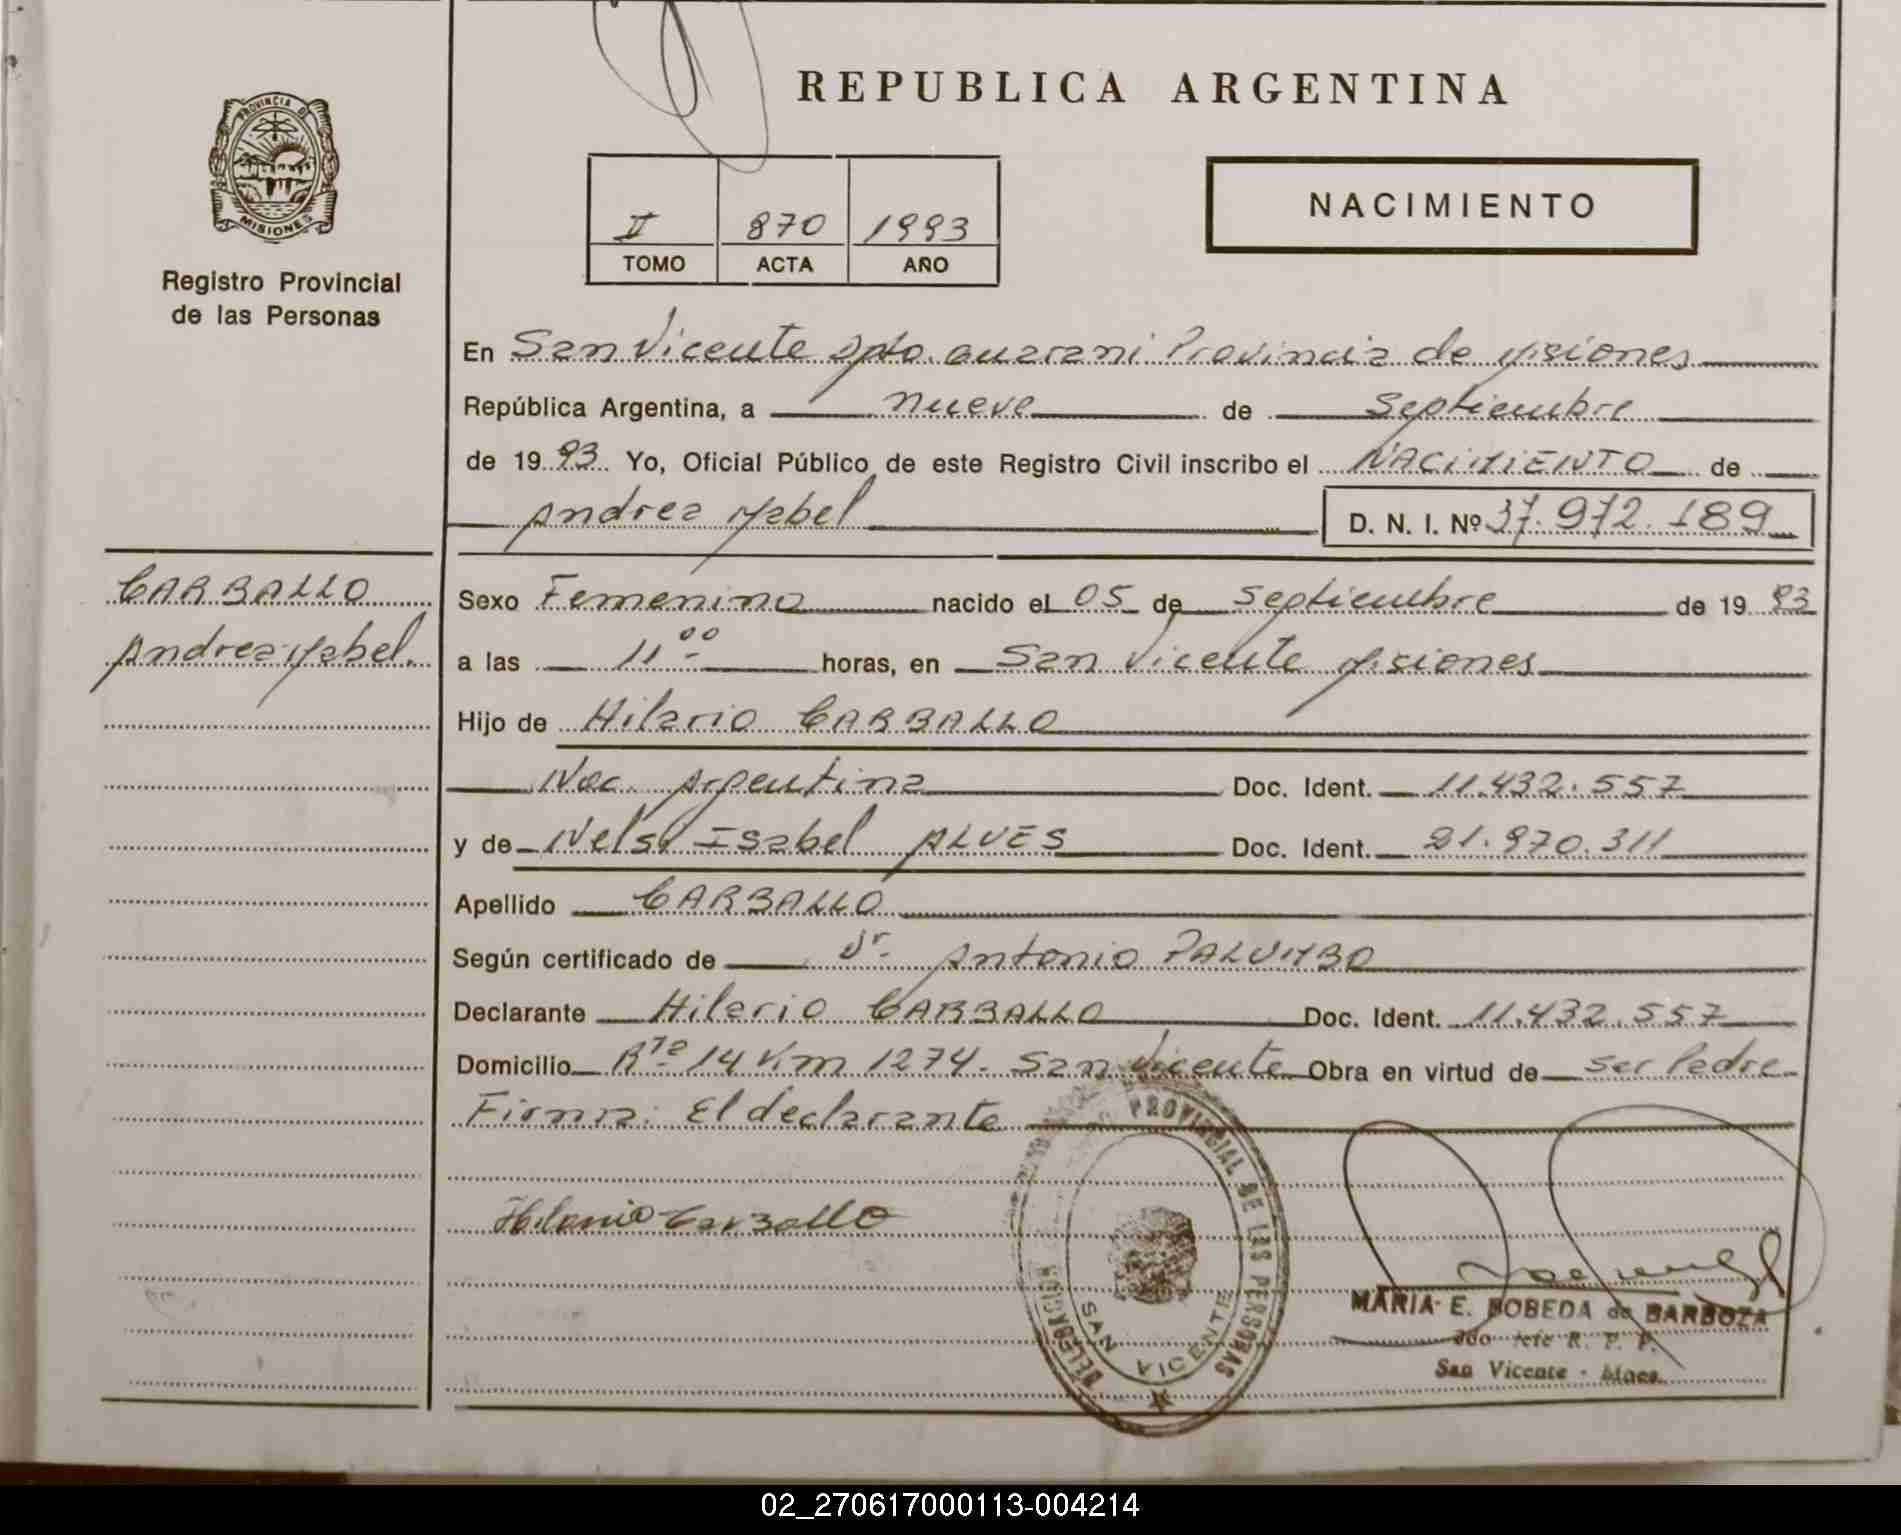 REPUBLICA ARGENTINA
PROVINCIA DE MISIONES
Registro Provincial
de las Personas
II 870 1993
TOMO ACTA AÑO
NACIMIENTO
En San Vicente Dpto. Guarani Provincia de Misiones
República Argentina, a nueve de Septiembre
de 1993 Yo, Oficial Público de este Registro Civil inscribo el NACIMIENTO de
Andrea Mabel D. N. I. Nº 37.972.189
CARBALLO
Andrea Mabel.
Sexo Femenino nacido el 05 de Septiembre de 1993
a las 11 00 horas, en San Vicente Misiones
Hijo de Hilario CARBALLO
Nac. Argentina Doc. Ident. 11.432.557
y de Nelsi Isabel ALVES Doc. Ident. 21.970.311
Apellido CARBALLO
Según certificado de Dr. Antonio PALUMBO
Declarante Hilario CARBALLO Doc. Ident. 11.432.557
Domicilio Rta 14 Km 1274. San Vicente Obra en virtud de ser Padre
Firma: El declarante
Hilario Carballo
DELEGACION PROVINCIAL DE LAS PERSONAS
SAN VICENTE
MARIA E. BOBEDA de BARBOZA
R. P. P.
San Vicente - Mnes.
02_270617000113-004214